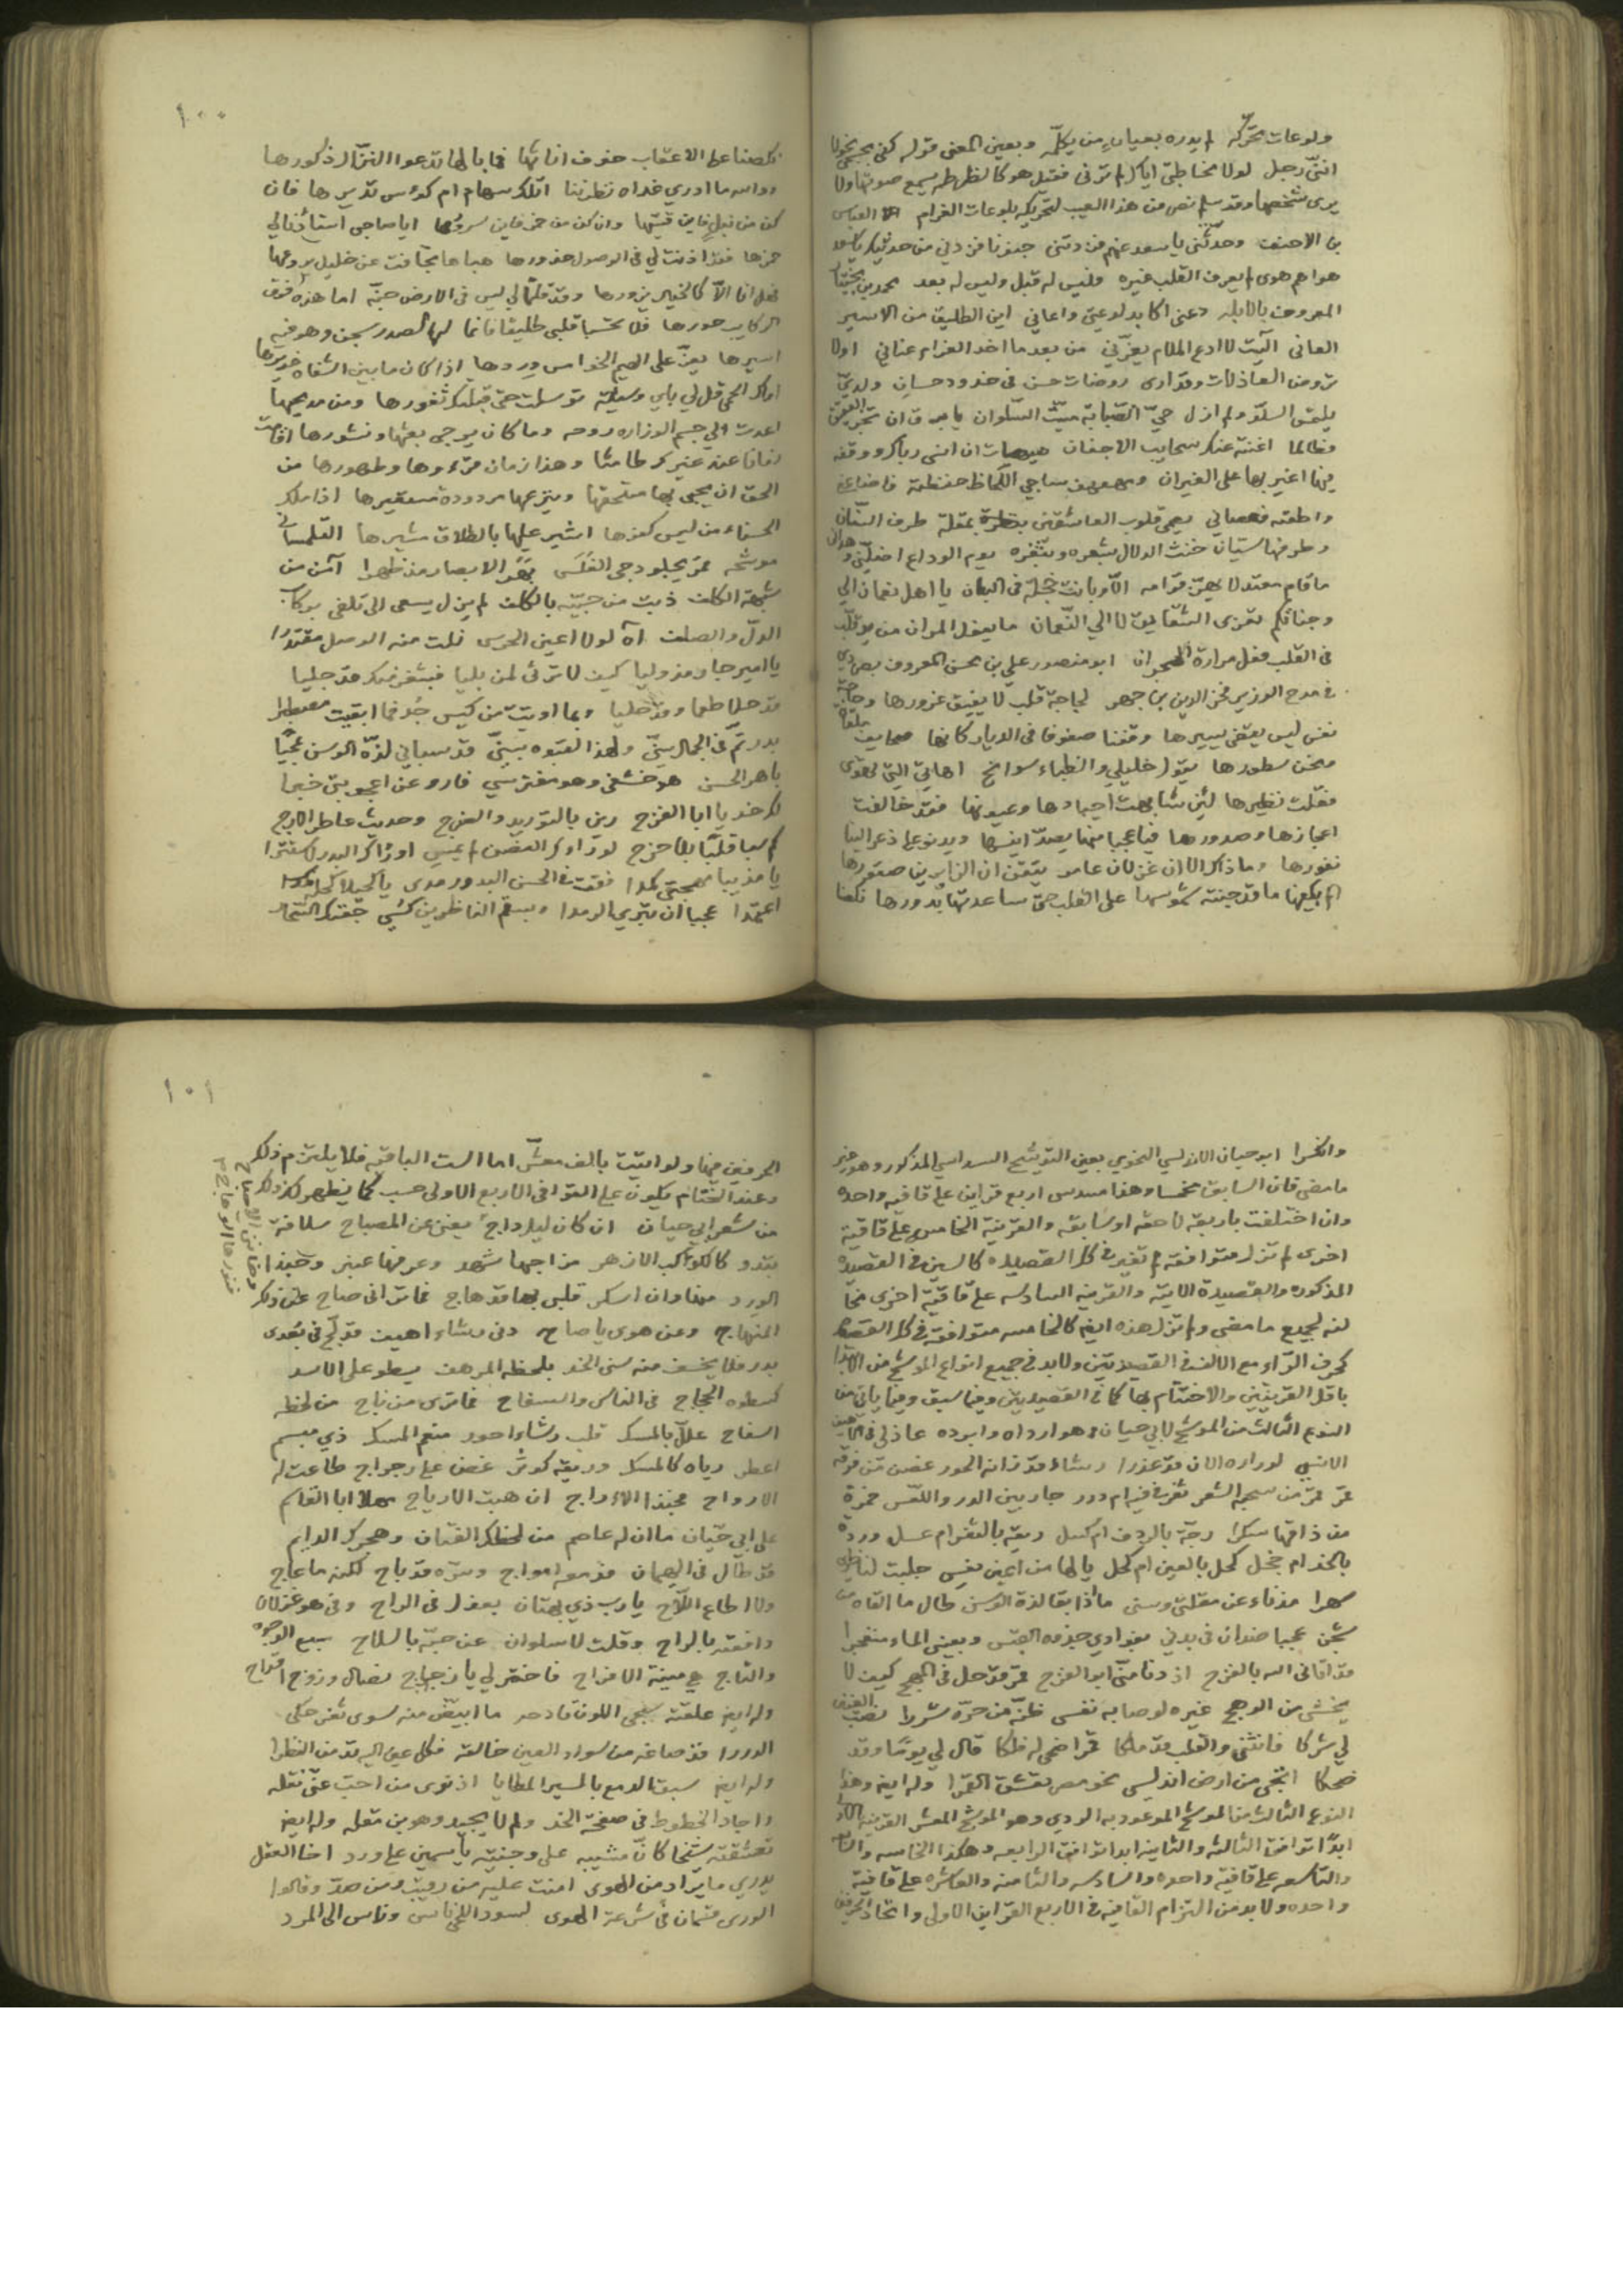 ولوعات تحركه لم يدره بعيان من يكلمه وبعين المعنى قوله كفى بجسمي نحولا
انني رجل لولا مخاطبتي اياك لم ترني فقيل هو كالظهر يسمع صوتها ولا
يرى شخصها وقد سلم نص من هذا العيب لتحريكه بلوعات الغرام العباس
بن الاحنف وحدثتني يا سعد عنهم فزدتني جنونا فزدني من حديثك يا سعد
هواهم هوى لم يعرف القلب غيره فليس له قبل وليس له بعد محمد بن بختيار
المعروف بالابله دعني اكابد لوعتي واعاني اين الطليق من الاسير
العاني آليت لا ادع الملام يغرني من بعد ما اخذ الغرام عناني اولا
تروض العاذلات وقد ارى روضات حسن في خدود حسان ولدي
يلتمس السلو ولم ازل حي الصبابة ميت السلوان يا برق ان تجز العقيق
فطالما اغنته عنك سحايب الاجفان هيهات ان انسى رباك ووقفة
فيها اغير بها على الغيران ومهفهف ساجي اللحاظ حفظته فاضاعني
واطعته فعصاني يصمي قلوب العاشقين بمقلة طرف السنان
وطرفها سيان خنث الدلال بشعره وبثغره يوم الوداع اضلني وهداني
ما قام معتدلا يهز قوامه الا وبانت خجلة في البان يا اهل نعمان الى
وجناتكم تعزى الشقايق لا الى النعمان ما يفعل المران من يد قلب
في القلب فعل مرارة الهجران ابو منصور علي بن محسن المعروف بصردر
في مدح الوزير فخر الدين بن جهير لجاجة قلب لا يفيق غرورها وحاجة
نفس ليس يقضى يسيرها وقفنا صفوفا في الديار كانها صحايف ملقاة
ونحن سطورها يقول خليلي والظباء سوانح اهاتي التي تهوى
فقلت نظيرها لئن شابهت اجيادها وعيونها فقد خالفت
اعجازها وصدورها فيا عجبا منها يصد انيسها ويدنو على ذعر الينا
نفورها وما ذاك الا ان غزلان عامر تيقن ان الزايرين صقورها
الم يكفها ما قد جنته شموسها على القلب حتى ساعدتها بدورها نكصنا
١٠٠
نكصنا على الاعقاب خوف اناثها فما بالها تدعوا النزال ذكورها
ووالله ما ادري غداة نظرننا اتلك سهام ام كؤس تديرها فان
كن من نبل فاين قسيها وان كن من خمر فاين سرورها ايا صاحبي استأذنا لي
خمرها فقد اذنت لي في الوصول خدورها هباها تجافت عن خليل يروعها
فهل انا الا كالخيال يزورها وقد قلتما لي ليس في الارض جنة اما هذه فوق
الركايب حورها فلا تحسبا قلبي طليقا فانما لها الصدر سجن وهو فيه
اسيرها يعز على الهيم الخوامس وردها اذا كان ما بين الشفاه غديرها
اراك الحمى قل لي باي وسيلة توسلت حتى قبلتك ثغورها ومن مديحها
اعدت الي جسم الوزارة روحه وما كان يرجى بعثها ونشورها اقامت
زمانا عند غيرك طامثا وهذا زمان قرءوها وطهورها من
الحق ان يحبى بها مستحقها وينزعها مردودة مستعيرها اذا ملك
الحسناء من ليس كفؤها اشير عليها بالطلاق مشيرها التلمساني
موشحه قمر يجلو دجى الغلس بهر الابصار مذ ظهرا آمن من
شبهة الكلف ذبت من حبيه بالكلف لم يزل يسعى الى تلفي بركاب
الدل والصلف آه لولا اعين الحرس نلت منه الوصل مقتدرا
يا اميرا جار مذ وليا كيف لا ترثى لمن بليا فبثغر منك قد جليا
قد حلا طعما وقد حليا وبما اوتيت من كيس جد فما ابقيت مصطبرا
بدر تم في الجمال سني ولهذا لقبوه سني قد سباني لذة الوسن
باهر الحسن هو خشفي وهو مفترسي فارو عن اعجوبتي خبرا
لك خد يا ابا الفرج زين بالتوريد والضرج وحديث عاطر الارج
كم سبا قلبا بلا حرج لو رآك الغصن لم يمس او رآك البدر لاستترا
يا مذيبا مهجتي كمدا فقت في الحسن البدور مدى يا كحيلا كحله
اعتمدا عجبا ان تبري الرمدا وبسقم الناظرين كسي جفنك السحار
وانكسرا ابو حيان الاندلسي النحوي بعين التوشيح السداسي المذكور وهو غير
ما مضى فان السابق مخمسا وهذا مسدس اربع قراين على قافية واحده
وان اختلفت باربعة لاحقة او سابقة والقرينة الخامس على قافية
اخرى لم تزل متوافقة لم تغير في كل القصيده كالسين في القصيدة
المذكوره والقصيدة الاتية والقرينه السادسه على قافية اخرى مخا
لفه لجميع ما مضى ولم تزل هذه ايضا كالخامسه متوافقة في كل القصيده
كحرف الراء مع الالف في القصيدتين ولا بد في جميع انواع الموشح من الابتدا
باقل القرينتين والاختتام بها كما في القصيدتين وفيما سبق وفيما ياتي من
النوع الثالث من الموشح لابي حيان وهو اراده وابوده عاذلي في الاهيف
الانسي لو راه الان قد عذرا رشاء قد زانه الحور غصن من فوقه
قمر قمر من سحبه الشعر ثغر في فيه ام درر جار بين الدر واللعس خمرة
من ذاقها سكرا رجة بالردف ام كسل ريقة بالثغر ام عسل وردة
بالخد ام خجل كحل بالعين ام كحل يا لها من اعين نعس جلبت لناظري
سهرا مذ ناء عن مقلتي وسني ما اذيقا لذة الوسن طال ما القاه من
شجن عجبا ضدان في بدني بفؤادي جذوة القبس وبعيني الماء منفجرا
قد اتاني الله بالفرج اذ دنا مني ابو الفرج قمر قد حل في المهج كيف لا
يخشى من الوهج غيره لو صابه نفسي ظنه من حره شررا نصب العينين
لي شركا فانثنى والقلب قد ملكا قمرا ضحى له فلكا قال لي يوما وقد
ضحكا انجى من ارض اندلسي نحو مصر تعشق القمرا وله ايضا وهذا
النوع الثالث من الموشح الموعود به الردي وهو الموشح المعشر القرينة الاولى
ابدا توافق الثالثه والثانيه ابدا توافق الرابعه وهكذا الخامسه والسابعه
والتاسعه على قافية واحده والسادسه والثامنه والعاشره على قافية
واحده ولا بد من التزام القافيه في الاربع القراين الاولى واتحاد الحرفين
١٠١
الحرفين فيها ولو اتيت بالف معشر اما الست الباقيه فلا يلتزم ذلك
وعند الختام يكون على القوافي الاربع الاولى حسب كما يظهر لك ذلك
من شعر ابي حيان ان كان ليل داج يغني عن المصباح سلافة
تبدو كالكوكب الازهر مزاجها شهد وعرفها عنبر وحبذا
الورد منها وان اسكر قلبي بها قد هاج فما تراني صاح عن ذلك
المنهاج وعن هوى يا صاح وفي رشاء اهيف قد لج في بعدي
بدر فلا يخسف منه سنى الخد بلحظه المرهف يسطو على الاسد
كسطوة الحجاج في الناس والسفاح فما ترى من ناج من لحظه
السفاح علل بالمسك قلب رشاء احور منعم المسك ذي مبسم
اعطر رياه كالمسك وريقه كوثر غصن على رجراج طاعت له
الارواح فحبذا الاراج ان هبت الارياح مهلا ابا القاسم
على ابي حيان ما ان له عاصم من لحظك الفتان وهجرك الدايم
قد طال في الهيمان فدمعه امواج وسره قد باح لكنه ما عاج
ولا اطاع اللاح يا رب ذي بهتان يعذل في الراح وفي هو غزلان
دافعته بالراح وقلت لا سلوان عن حبه بالسلاح سبع الوجوه
والتاج هي منية الافراح فاختر لي يا زجاج نصال وزوج اقداح
وله ايضا علقته سبجي اللون قادحه ما ابيض منه سوى ثغر حكى
الدررا قد صاغه من سواد العين خالقه فكل عين اليه تدمن النظرا
وله ايضا سبق الدمع بالمسير المطايا اذ نوى من احب عني نقله
واجاد الخطوط في صفحة الخد ولم لا يجيد وهو بن مقله وله ايضا
تعشقته شيخا كان مشيبه على وجنتيه ياسمين على ورد اخا العقل
يدري ما يراد من الهوى امنت عليه من رقيب ومن صد وقالوا
الورى قسمان في شرعة الهوى لسود اللحى ناس وناس الى المرد